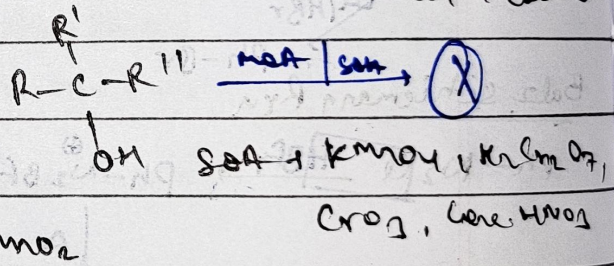 R'
R-C-R''
MOA | SOA
X
OH SOA → KMnO4, K2Cr2O7,
CrO3, Conc. HNO3
MnO2